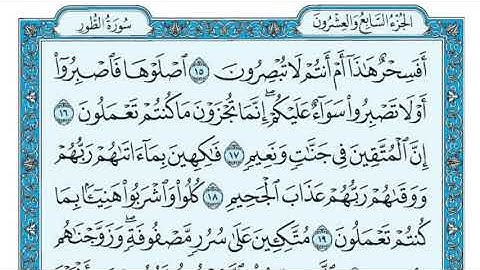 الجزء السابع والعشرون سورة الطور
أَفَسِحْرٌ هَٰذَا أَمْ أَنتُمْ لَا تُبْصِرُونَ ١٥ اصْلَوْهَا فَاصْبِرُوا
أَوْ لَا تَصْبِرُوا سَوَاءٌ عَلَيْكُمْ إِنَّمَا تُجْزَوْنَ مَا كُنتُمْ تَعْمَلُونَ ١٦
إِنَّ الْمُتَّقِينَ فِي جَنَّاتٍ وَنَعِيمٍ ١٧ فَاكِهِينَ بِمَا آتَاهُمْ رَبُّهُمْ
وَوَقَاهُمْ رَبُّهُمْ عَذَابَ الْجَحِيمِ ١٨ كُلُوا وَاشْرَبُوا هَنِيئًا بِمَا
كُنتُمْ تَعْمَلُونَ ١٩ مُتَّكِئِينَ عَلَىٰ سُرُرٍ مَّصْفُوفَةٍ وَزَوَّجْنَاهُم